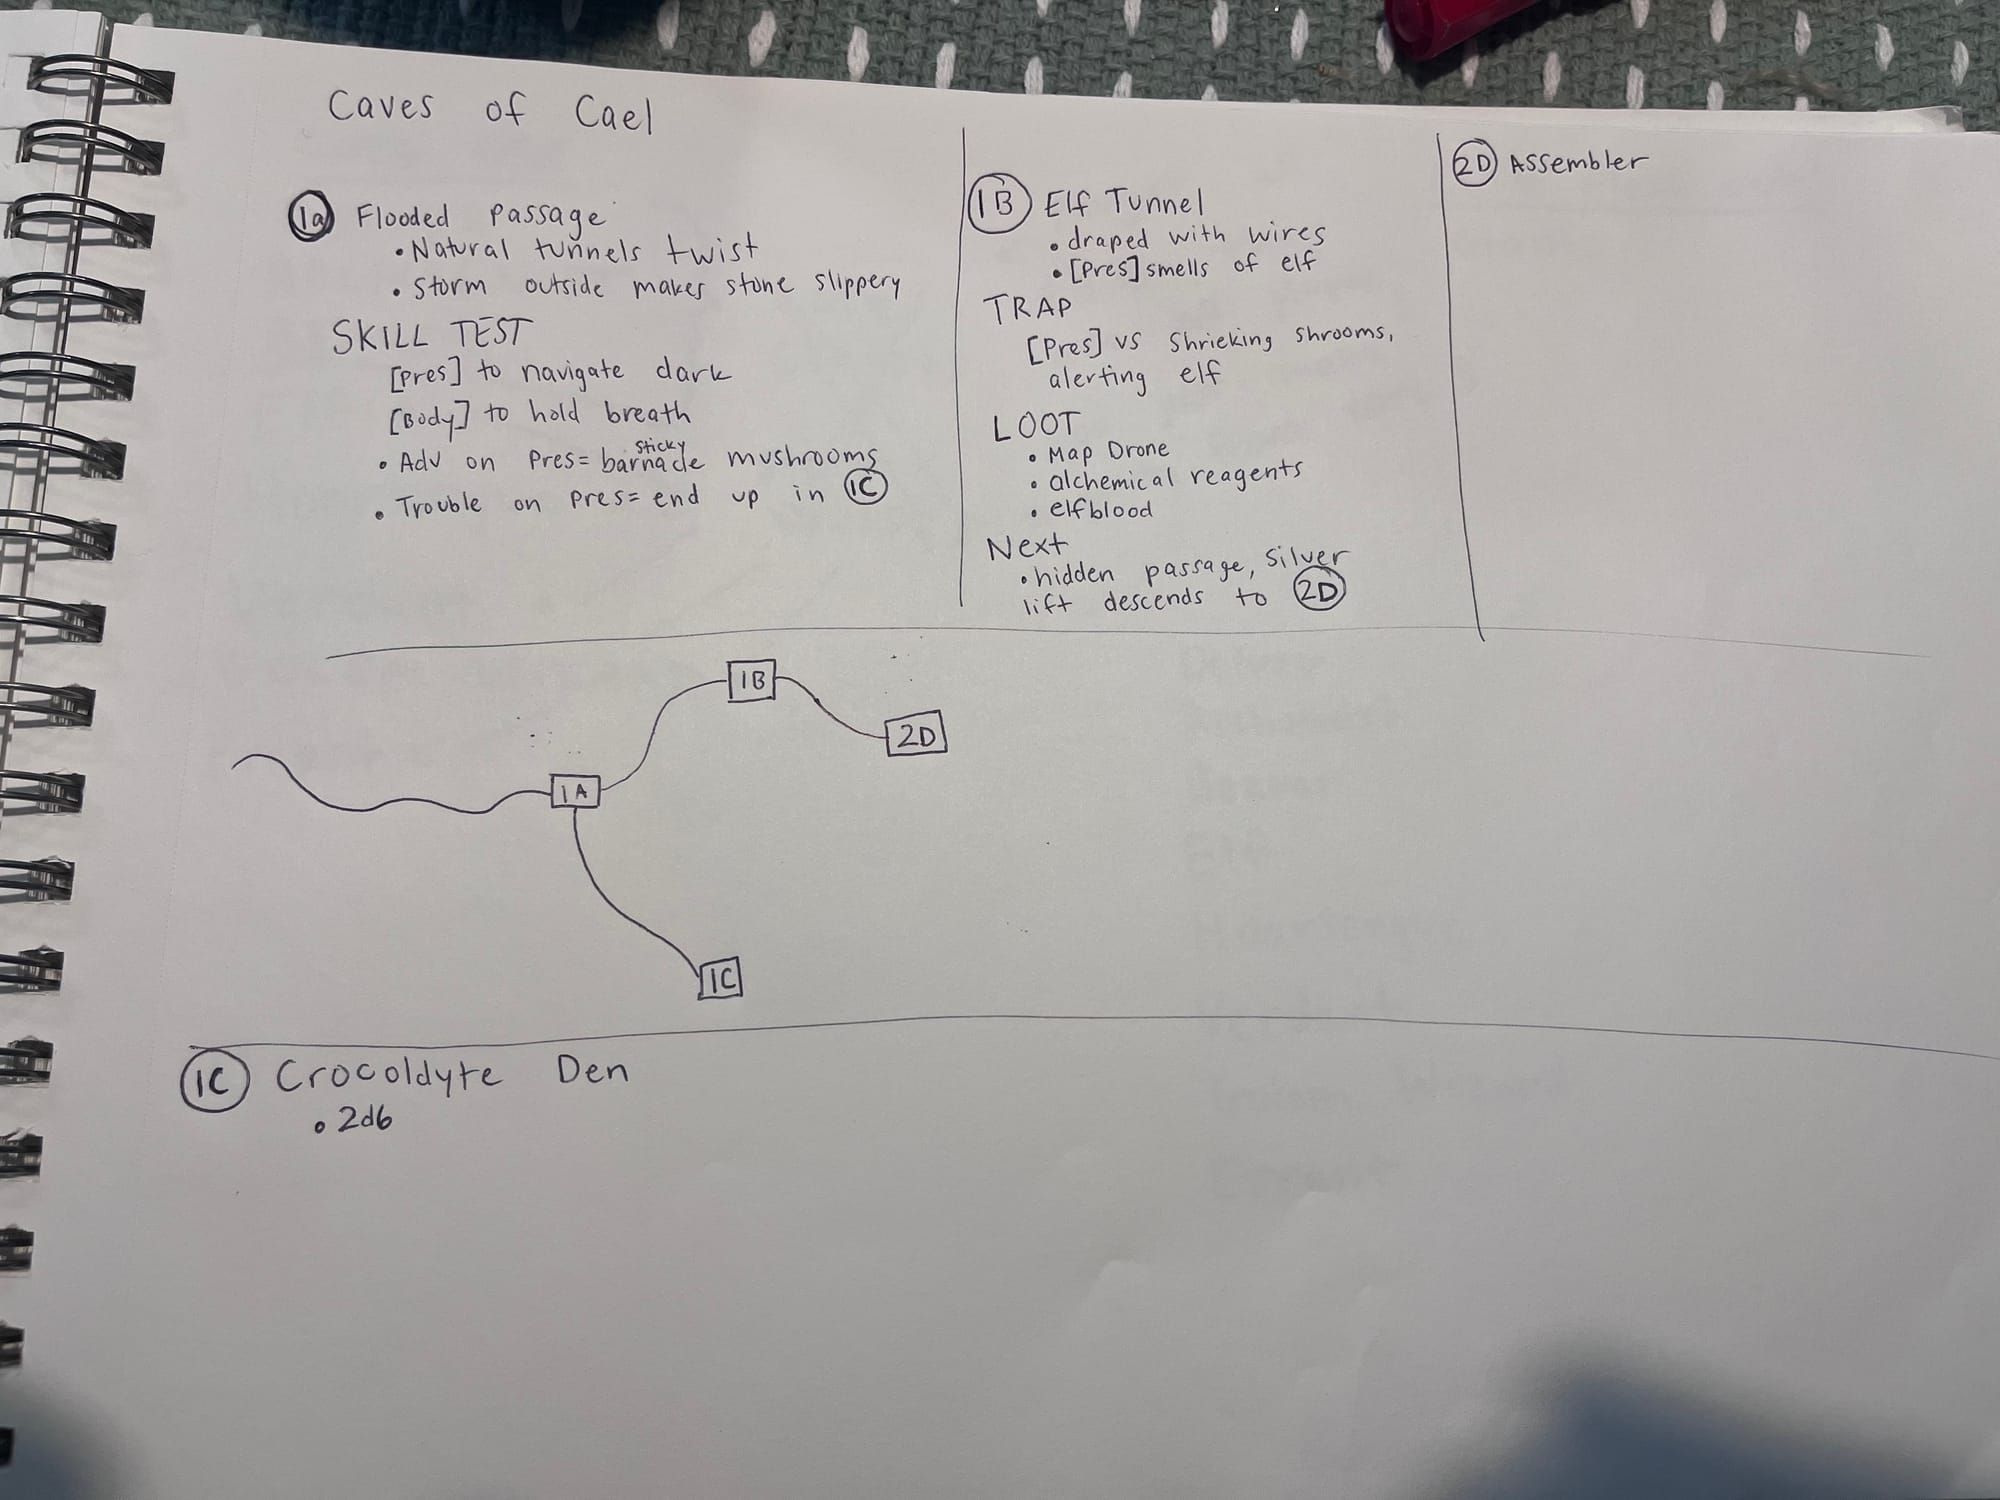 Caves of Cael
1a Flooded Passage
• Natural tunnels twist
• Storm outside makes stone slippery
SKILL TEST
[Pres] to navigate dark
[Body] to hold breath
• Adv on Pres = barnacle mushrooms
sticky
• Trouble on Pres = end up in 1C
1B Elf Tunnel
• draped with wires
• [Pres] smells of elf
TRAP
[Pres] vs Shrieking Shrooms,
alerting elf
LOOT
• Map Drone
• alchemical reagents
• elfblood
Next
• hidden passage, silver
lift descends to 2D
2D Assembler
1B
2D
1A
1C
1C Crocoldyte Den
• 2d6